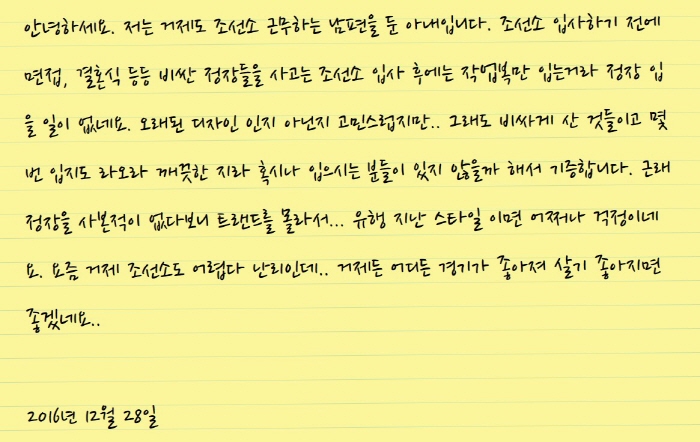 안녕하세요. 저는 거제도 조선소 근무하는 남편을 둔 아내입니다. 조선소 입사하기 전에
면접, 결혼식 등등 비싼 정장들을 사고는 조선소 입사 후에는 작업복만 입는거라 정장 입
을 일이 없네요. 오래된 디자인 인지 아닌지 고민스럽지만.. 그래도 비싸게 산 것들이고 몇
번 입지도 라오라 깨끗한 지라 혹시나 입으시는 분들이 있지 않을까 해서 기증합니다. 근래
정장을 사본적이 없다보니 트랜드를 몰라서... 유행 지난 스타일 이면 어쩌나 걱정이네
요. 요즘 거제 조선소도 어렵다 난리인데.. 거제든 어디든 경기가 좋아져 살기 좋아지면
좋겠네요..
2016년 12월 28일